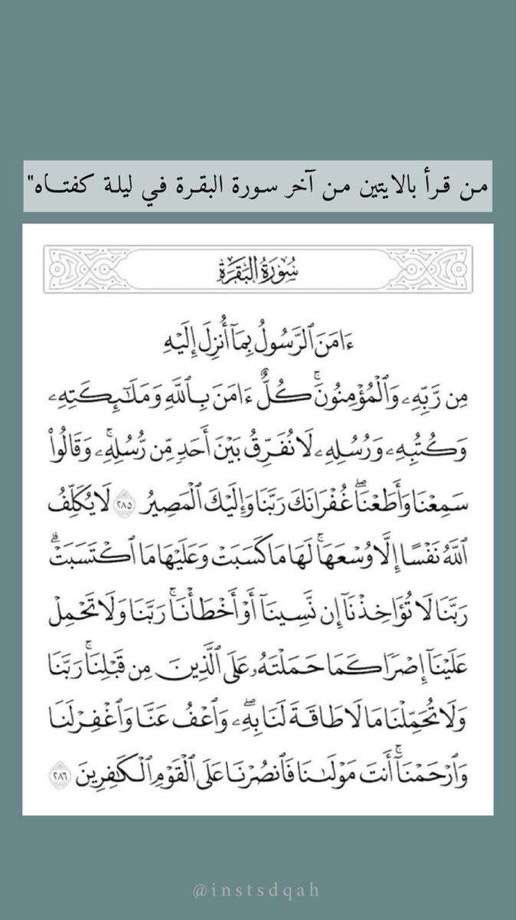 من قرأ بالايتين من آخر سورة البقرة في ليلة كفتاه"
سُورَةُ البَقَرَةِ
ءَامَنَ ٱلرَّسُولُ بِمَآ أُنزِلَ إِلَيْهِ
مِن رَّبِّهِۦ وَٱلْمُؤْمِنُونَۚ كُلٌّ ءَامَنَ بِٱللَّهِ وَمَلَٰٓئِكَتِهِۦ
وَكُتُبِهِۦ وَرُسُلِهِۦ لَا نُفَرِّقُ بَيْنَ أَحَدٍ مِّن رُّسُلِهِۦۚ وَقَالُوا۟
سَمِعْنَا وَأَطَعْنَاۖ غُفْرَانَكَ رَبَّنَا وَإِلَيْكَ ٱلْمَصِيرُ ٢٨٥ لَا يُكَلِّفُ
ٱللَّهُ نَفْسًا إِلَّا وُسْعَهَاۚ لَهَا مَا كَسَبَتْ وَعَلَيْهَا مَا ٱكْتَسَبَتْۗ
رَبَّنَا لَا تُؤَاخِذْنَآ إِن نَّسِينَآ أَوْ أَخْطَأْنَاۚ رَبَّنَا وَلَا تَحْمِلْ
عَلَيْنَآ إِصْرًا كَمَا حَمَلْتَهُۥ عَلَى ٱلَّذِينَ مِن قَبْلِنَاۚ رَبَّنَا
وَلَا تُحَمِّلْنَا مَا لَا طَاقَةَ لَنَا بِهِۦۖ وَٱعْفُ عَنَّا وَٱغْفِرْ لَنَا
وَٱرْحَمْنَآۚ أَنتَ مَوْلَىٰنَا فَٱنصُرْنَا عَلَى ٱلْقَوْمِ ٱلْكَٰفِرِينَ ٢٨٦
@instsdqah